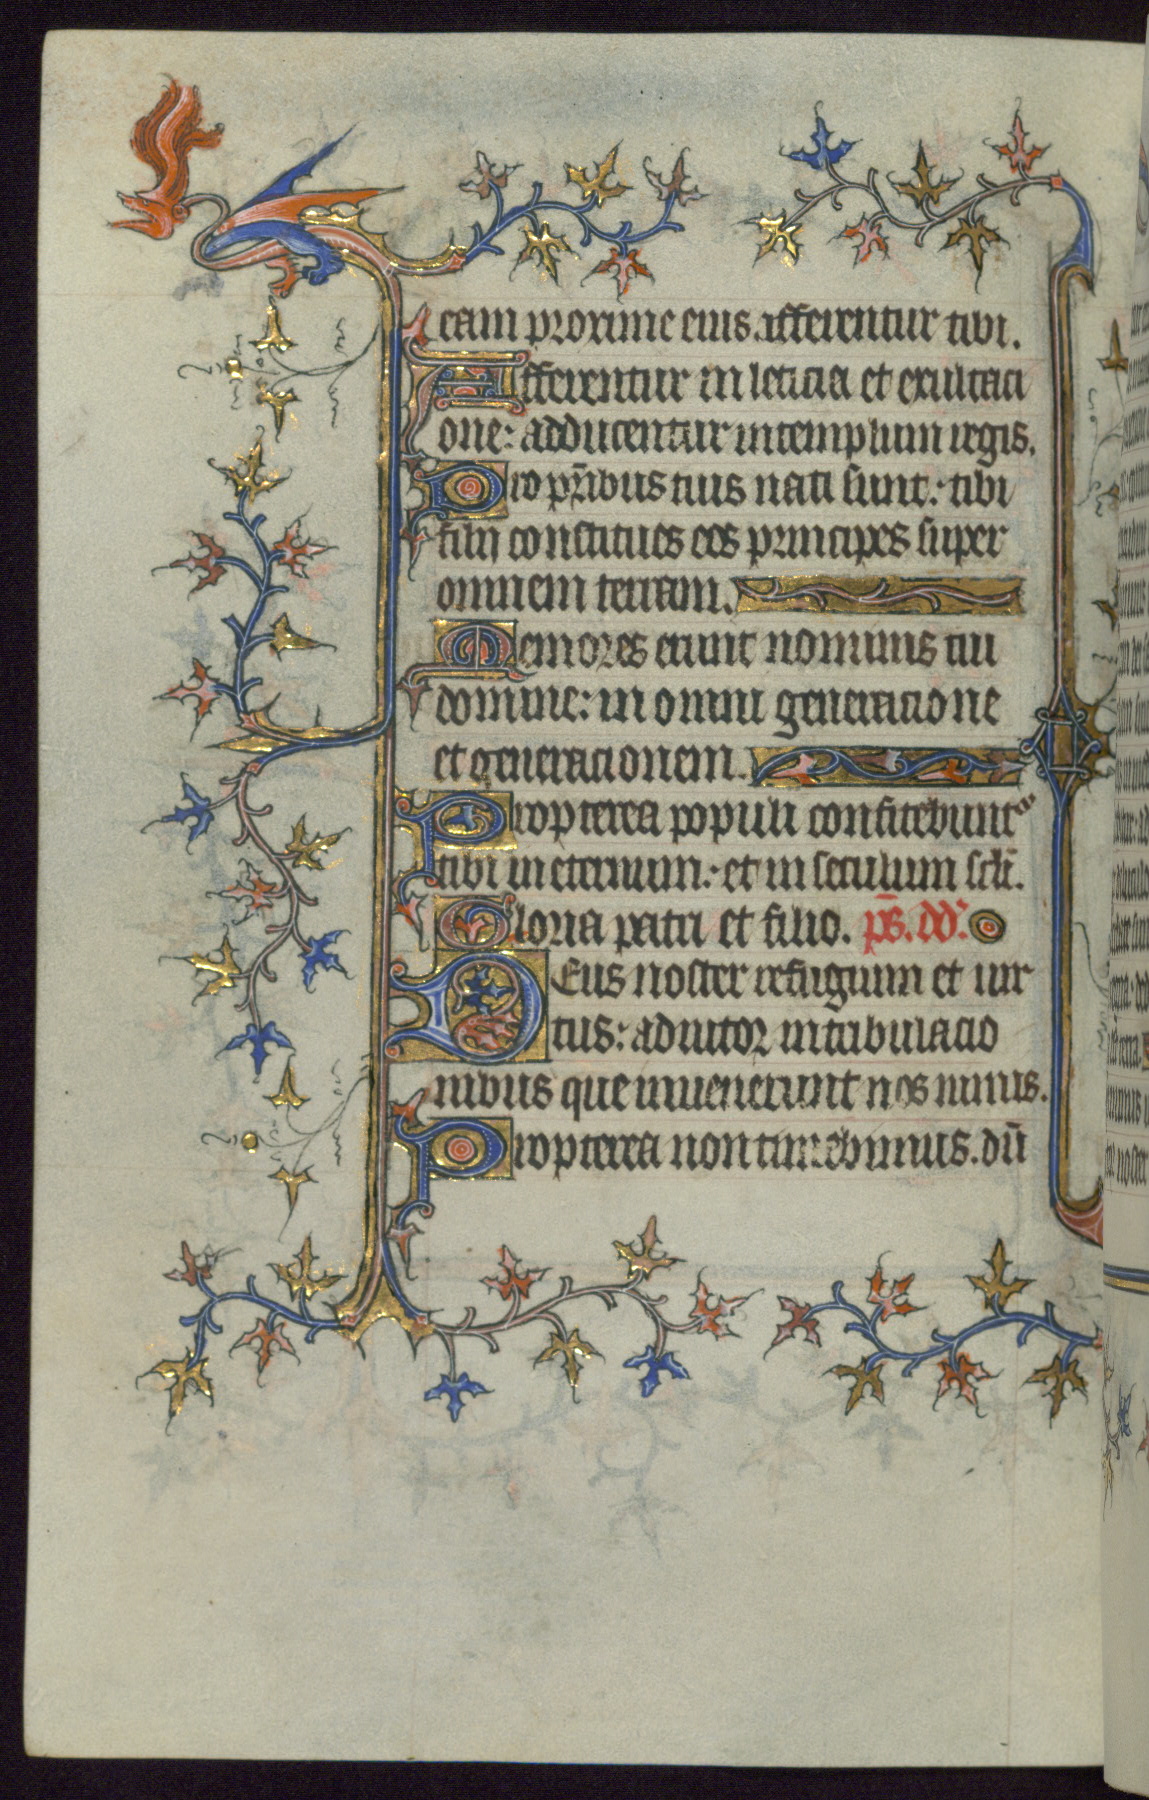 eam proxime eius. afferentur tibi.
Afferentur in leticia et exultaci
one: adducentur in templum regis.
Pro pr̄ibus tuis nati sunt: tibi
filij constitues eos principes super
omnem terram.
Memores erunt nominis tui
domine: in omni generacione
et generacionem.
Propterea populi confitebunt᷑
tibi in eternum: et in seculum scl̄i.
Gloria patri et filio. ps̄. dd̄.
Deus noster refugium et uir
tus: adiutor in tribulacio
nibus que inuenerunt nos nimis.
Propterea non timebimus. dū